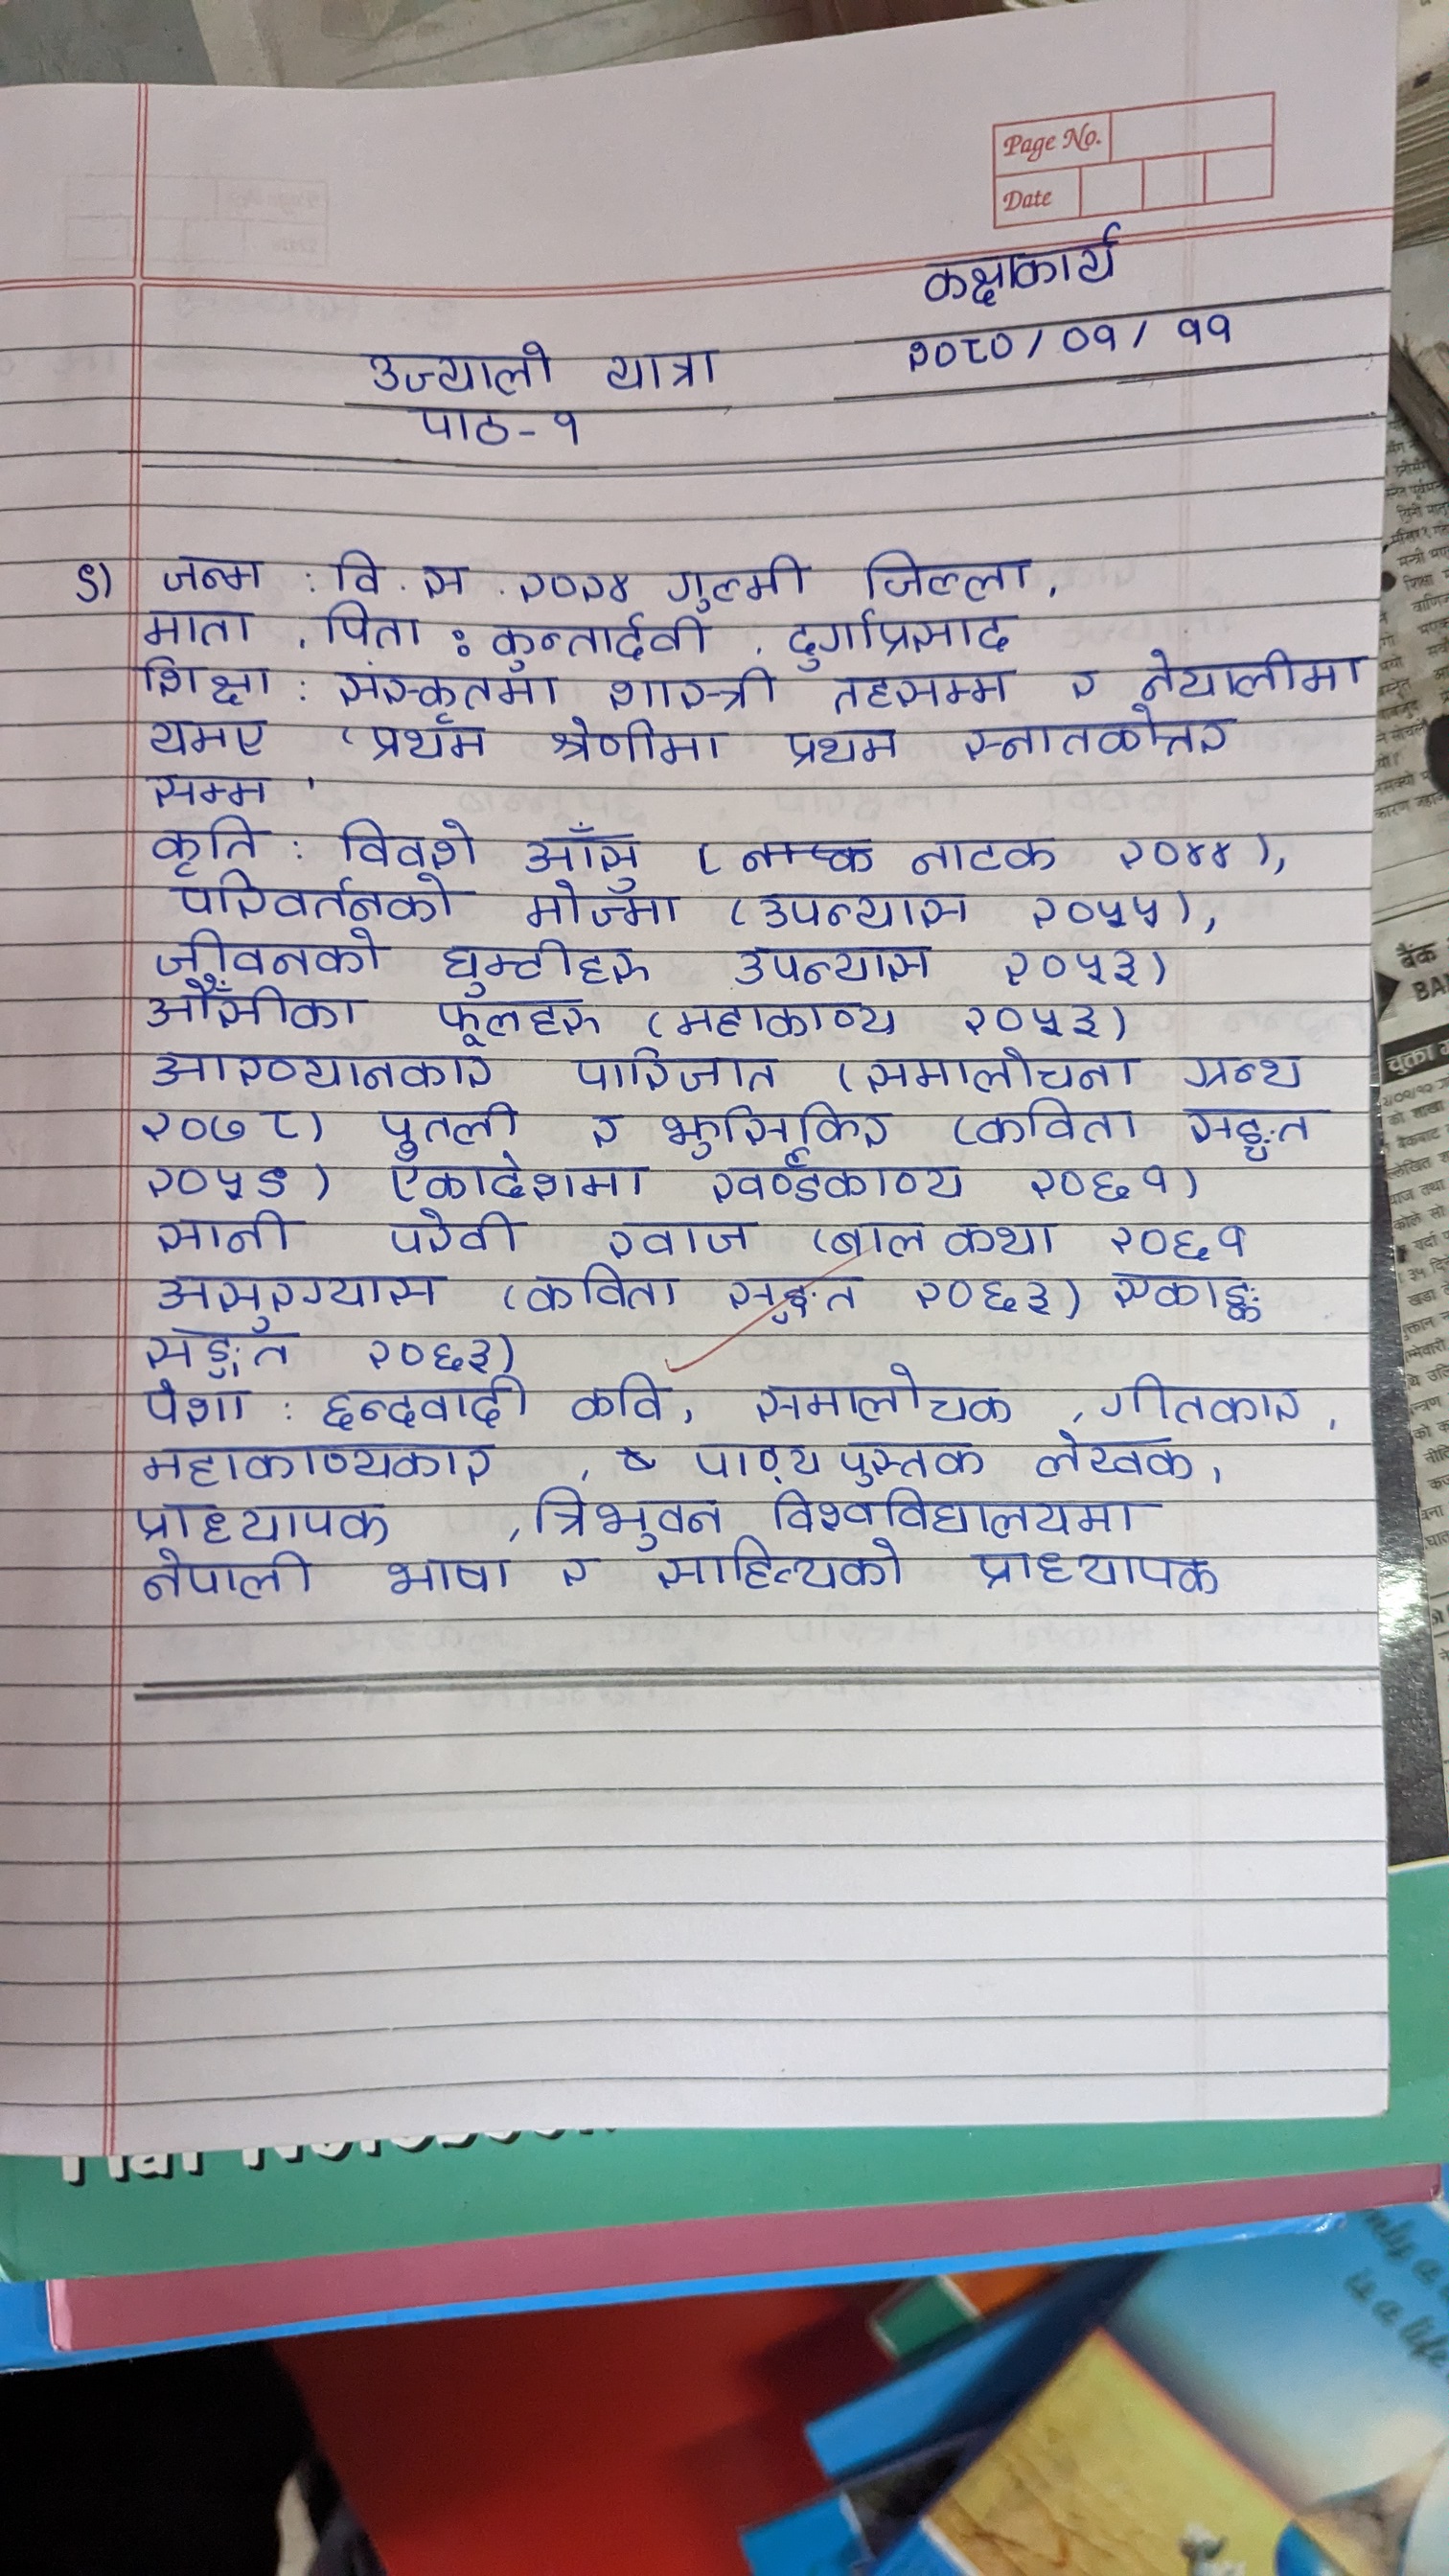 Page No.
Date
कक्षाकार्य
२०८०/०१/११
उज्यालो यात्रा
पाठ-१
S) जन्म : वि.स.२०२४ गुल्मी जिल्ला,
माता, पिता : कुन्तादेवी, दुर्गाप्रसाद
शिक्षा : संस्कृतमा शास्त्री तहसम्म र नेपालीमा
यमए (प्रथम श्रेणीमा प्रथम स्नातकोत्तर
सम्म
कृति : विवश आँसु ( नाटक २०४४),
परिवर्तनको मोज्मा (उपन्यास २०५५),
जीवनको घुम्टीहरु उपन्यास २०५३)
औँसीका फूलहरु (महाकाव्य २०५३)
आख्यानकार पारिजात (समालोचना ग्रन्थ
२०७८) पुतली र झुसिकिर (कविता सङ्गत
२०५९) एकादेशमा खण्डकाव्य २०६१)
सानी परेवी खाज (बाल कथा २०६१
असुरग्यास (कविता सङ्गत २०६३) एकाङ्क
सङ्गत २०६३)
पेशा : छन्दवादी कवि, समालोचक, गीतकार,
महाकाव्यकार, पाठ्यपुस्तक लेखक,
प्राध्यापक, त्रिभुवन विश्वविद्यालयमा
नेपाली भाषा र साहित्यको प्राध्यापक